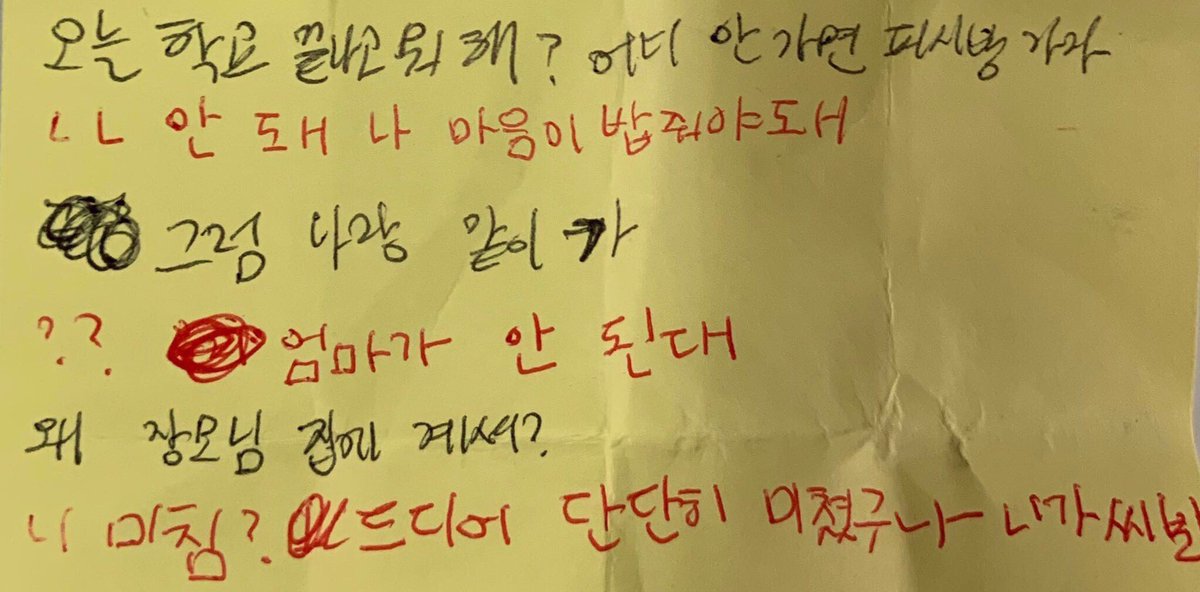 오늘 학교 끝나고 뭐 해? 어디 안 가면 피시방 가자
ㄴㄴ 안 돼 나 마음이 밥 줘야 돼
그럼 나랑 같이 가
?? 엄마가 안 된대
왜 장모님 집에 계셔?
니 미침? 드디어 단단히 미쳤구나 니가 씨발